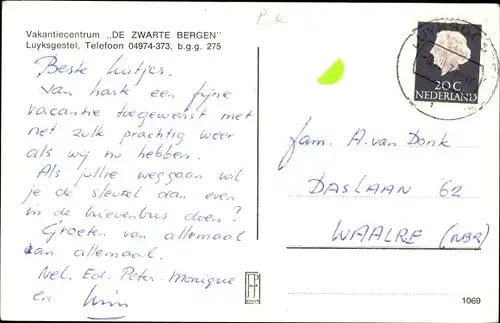 Vakantiecentrum „DE ZWARTE BERGEN"
Luyksgestel, Telefoon 04974-373, b.g.g. 275
Beste luitjes.
Van harte een fijne
vacantie toegewenst met
net zulk prachtig weer
als wij nu hebben.
Als jullie weggaan wil
je de sleutel dan even
in de brievenbus doen?
Groeten van allemaal
aan allemaal.
Nel. Ed. Peter. Monique
en Wim
20 C
NEDERLAND
fam. A. van Donk
DASLAAN 62
WAALRE (NBR)
1069